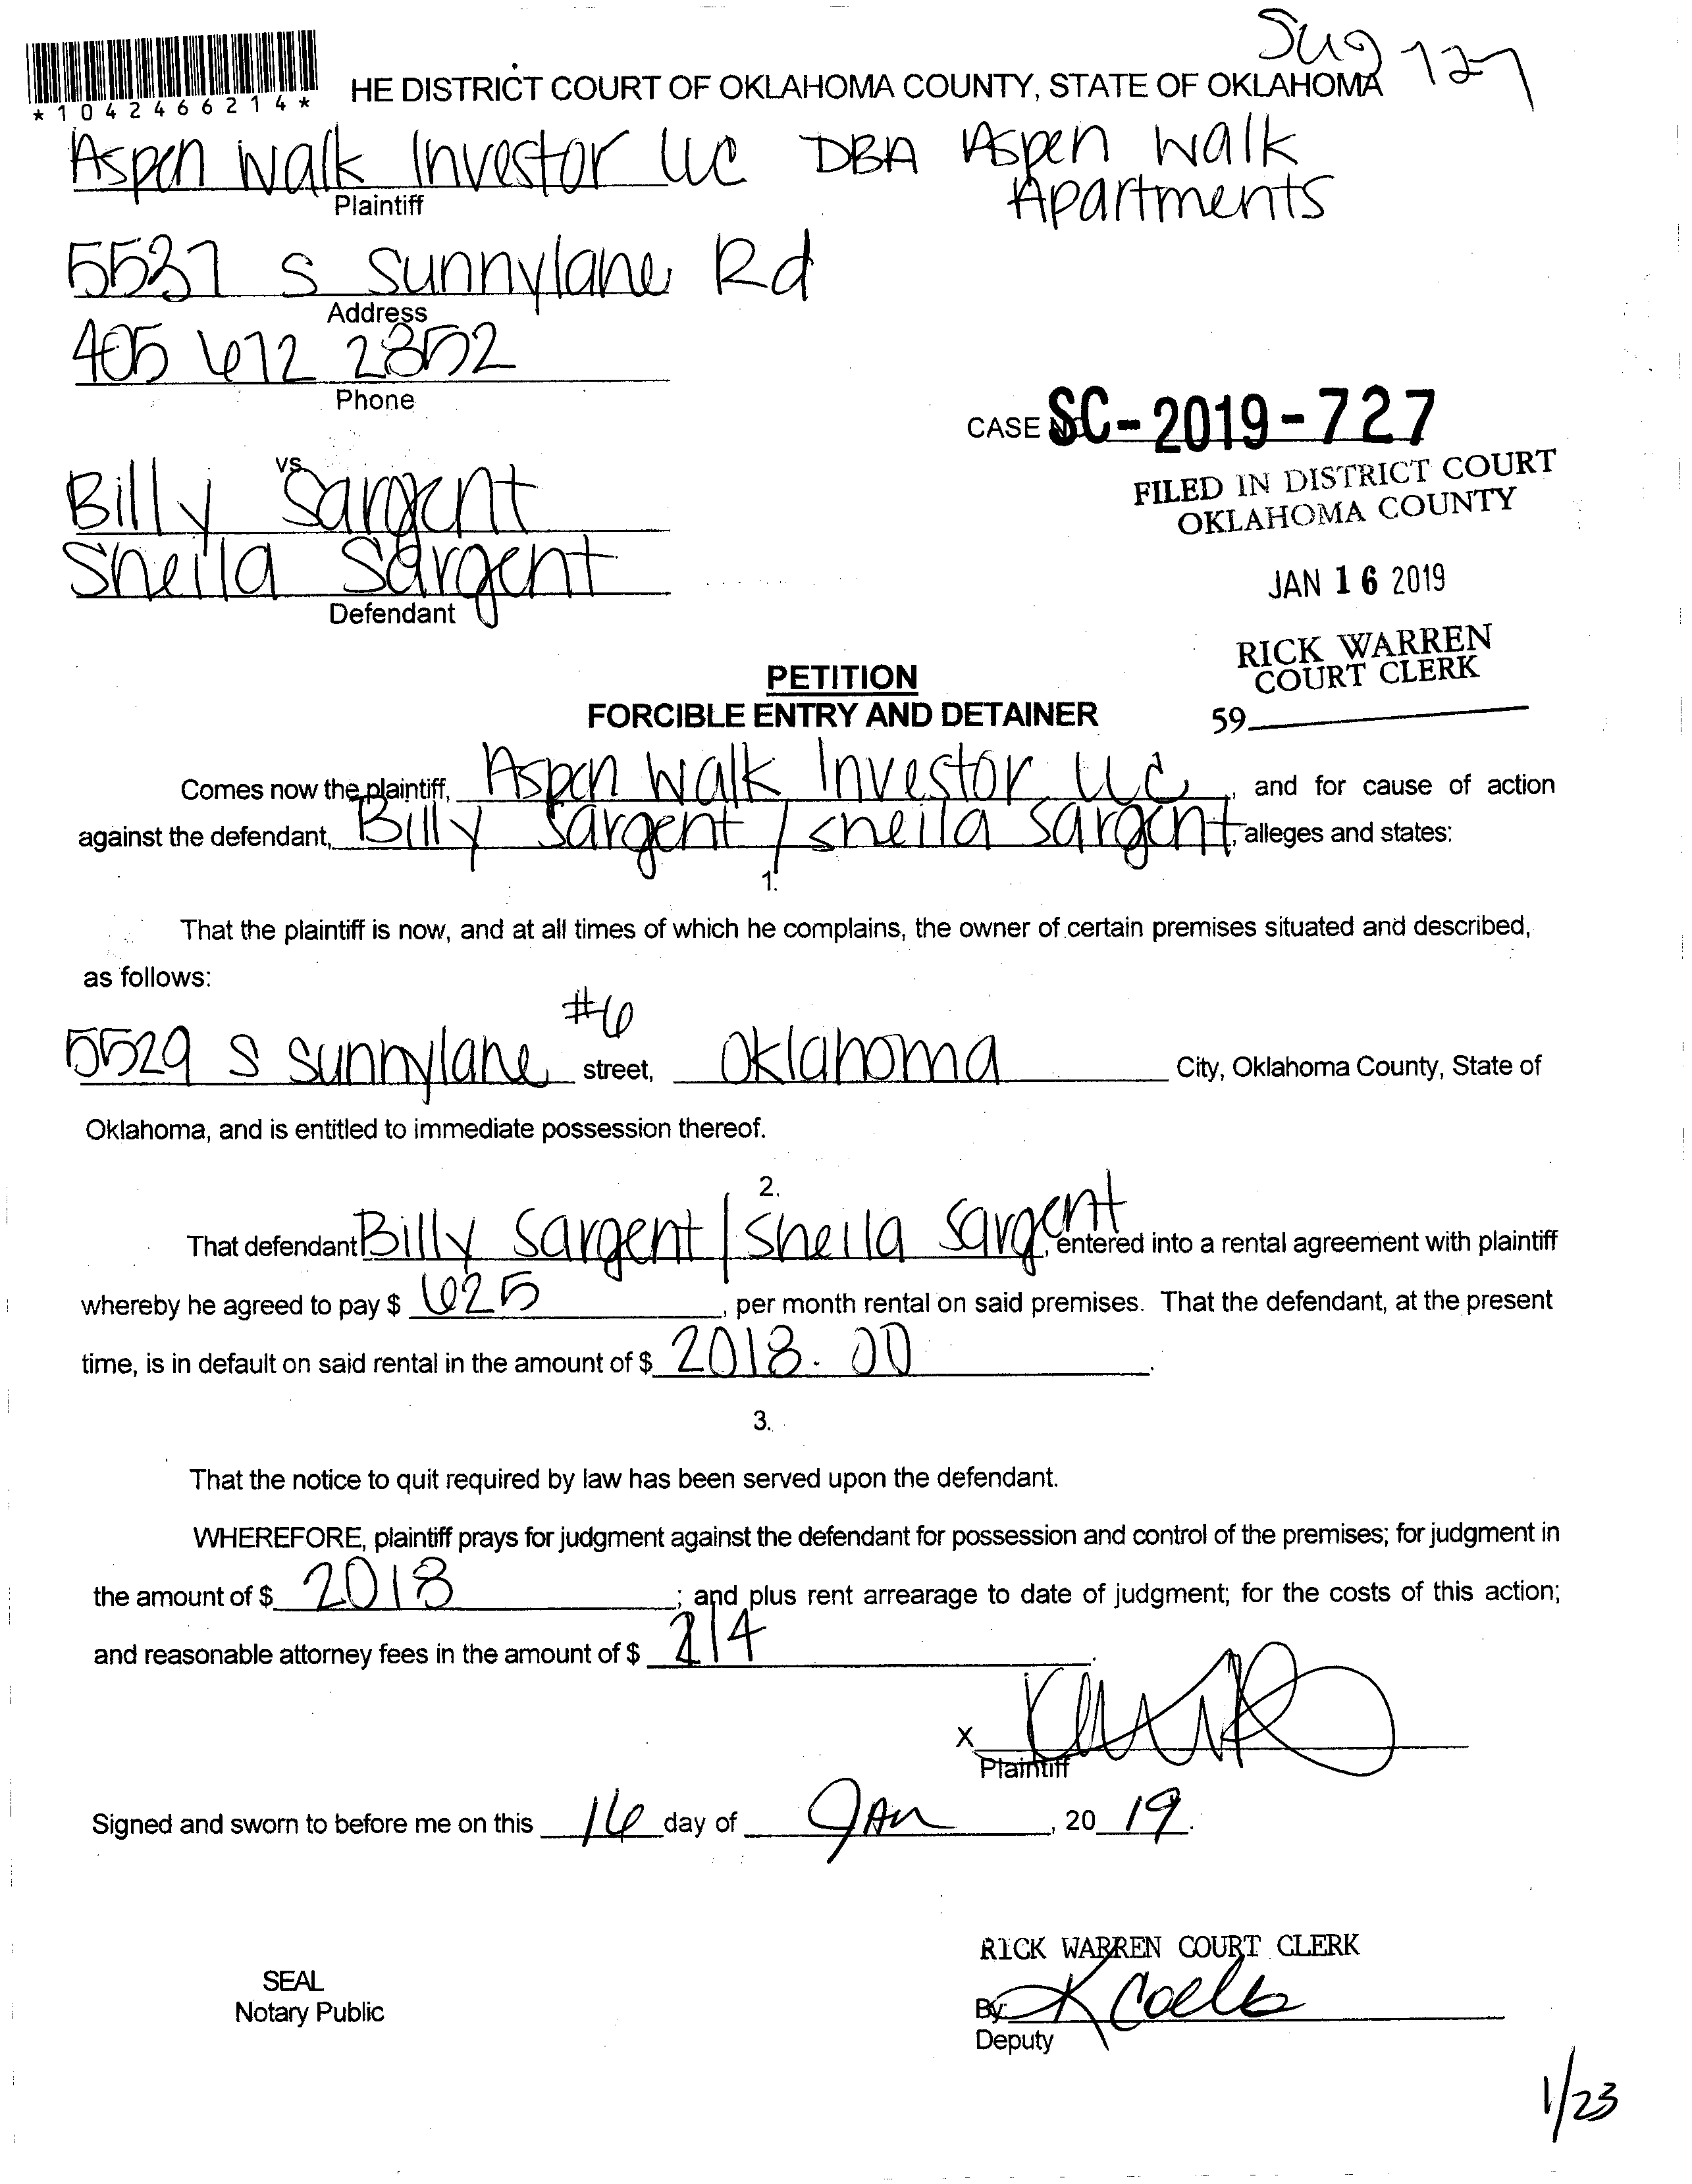 Sug 127
*1042466214*
HE DISTRICT COURT OF OKLAHOMA COUNTY, STATE OF OKLAHOMA
Aspen Walk Investor LLC DBA Aspen Walk
Apartments
Plaintiff
5537 S Sunnylane Rd
Address
405 672 2352
Phone
CASE NO SC-2019-727
FILED IN DISTRICT COURT
OKLAHOMA COUNTY
vs
Billy Sargent
Sheila Sargent
Defendant
JAN 16 2019
RICK WARREN
COURT CLERK
59
PETITION
FORCIBLE ENTRY AND DETAINER
Comes now the plaintiff, Aspen Walk Investor LLC, and for cause of action
against the defendant, Billy Sargent / Sheila Sargent, alleges and states:
1.
That the plaintiff is now, and at all times of which he complains, the owner of certain premises situated and described,
as follows:
#6
5529 S Sunnylane street, Oklahoma City, Oklahoma County, State of
Oklahoma, and is entitled to immediate possession thereof.
2.
That defendant Billy Sargent / Sheila Sargent, entered into a rental agreement with plaintiff
whereby he agreed to pay $ 625, per month rental on said premises. That the defendant, at the present
time, is in default on said rental in the amount of $ 2018.00.
3.
That the notice to quit required by law has been served upon the defendant.
WHEREFORE, plaintiff prays for judgment against the defendant for possession and control of the premises; for judgment in
the amount of $ 2018; and plus rent arrearage to date of judgment; for the costs of this action;
and reasonable attorney fees in the amount of $ 214.
X
Plaintiff
Signed and sworn to before me on this 16 day of Jan, 20 19.
RICK WARREN COURT CLERK
SEAL
Notary Public
By: K Coelle
Deputy
1/23